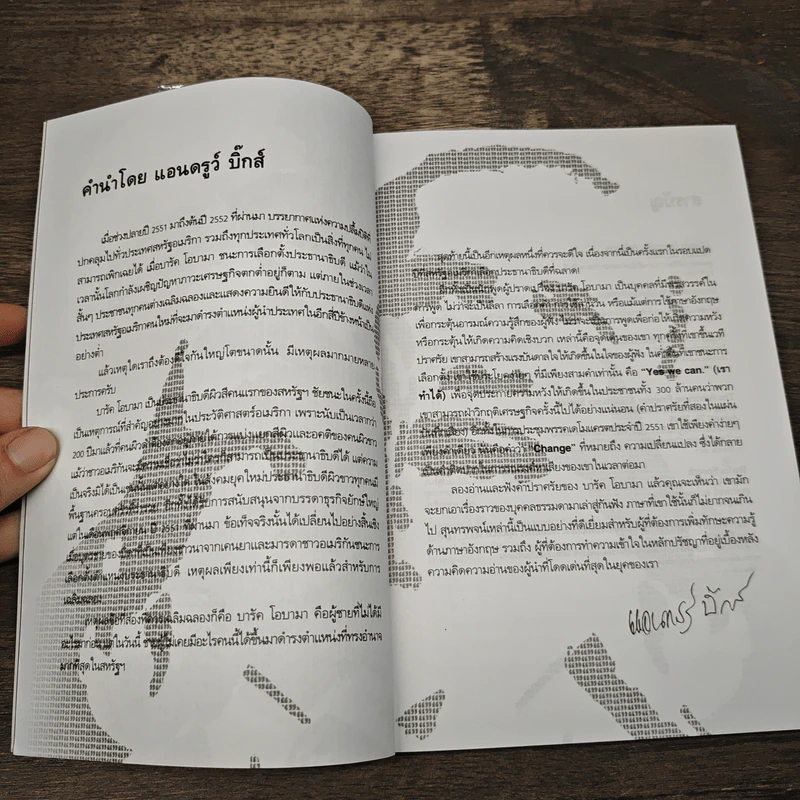 คำนำโดย แอนดรูว์ บิ๊กส์
เมื่อช่วงปลายปี 2551 มาถึงต้นปี 2552 ที่ผ่านมา บรรยากาศแห่งความปลื้มปีติที่
ปกคลุมไปทั่วประเทศสหรัฐอเมริกา รวมถึงทุกประเทศทั่วโลกเป็นสิ่งที่ทุกคน ไม่
สามารถเพิกเฉยได้ เมื่อบารัค โอบามา ชนะการเลือกตั้งประธานาธิบดี แม้ว่าใน
เวลานั้นโลกกำลังเผชิญปัญหาภาวะเศรษฐกิจตกต่ำอยู่ก็ตาม แต่ภายในช่วงเวลา
สั้นๆ ประชาชนทุกคนต่างเฉลิมฉลองและแสดงความยินดีให้กับประธานาธิบดีแห่ง
ประเทศสหรัฐอเมริกาคนใหม่ที่จะมาดำรงตำแหน่งผู้นำประเทศในอีกสี่ปีข้างหน้าเป็น
อย่างต่ำ
แล้วเหตุใดเราถึงต้องดีใจกันใหญ่โตขนาดนั้น มีเหตุผลมากมายหลาย
ประการครับ
บารัค โอบามา เป็นประธานาธิบดีผิวสีคนแรกของสหรัฐฯ ชัยชนะในครั้งนี้ถือ
เป็นเหตุการณ์ที่สำคัญอย่างมากในประวัติศาสตร์อเมริกา เพราะนับเป็นเวลากว่า
200 ปีมาแล้วที่คนผิวดำ ภายใต้การแบ่งแยกสีผิวและอคติของคนผิวขาว
แม้ว่าชาวอเมริกันจะ สามารถเป็นประธานาธิบดีได้ แต่ความ
เป็นจริงมิได้เป็น ในสังคมยุคใหม่ประธานาธิบดีผิวขาวทุกคนมี
พื้นฐานครอบครัว ได้รับการสนับสนุนจากบรรดาธุรกิจยักษ์ใหญ่
แต่ในเดือนพฤศจิกายน ปี 2551 ที่ผ่านมา ข้อเท็จจริงนั้นได้เปลี่ยนไปอย่างสิ้นเชิง
เมื่อบุตรชายของ ชาวนาจากเคนยาและมารดาชาวอเมริกันชนะการ
เลือกตั้งตำแหน่งประธานาธิบดี เหตุผลเพียงเท่านี้ก็เพียงพอแล้วสำหรับการ
เฉลิมฉลอง
เหตุผลข้อที่สองที่ควรเฉลิมฉลองก็คือ บารัค โอบามา คือผู้ชายที่ไม่ได้มี
อะไรมาก่อน แต่ในวันนี้ ชายที่ไม่เคยมีอะไรคนนี้ได้ขึ้นมาดำรงตำแหน่งที่ทรงอำนาจ
มากที่สุดในสหรัฐฯ
สุดท้ายนี้เป็นอีกเหตุผลหนึ่งที่ควรจะดีใจ เนื่องจากนี่เป็นครั้งแรกในรอบแปด
ปีที่สหรัฐอเมริกาเลือกประธานาธิบดีที่ฉลาด!
ผู้ปราดเปรื่อง บารัค โอบามา เป็นบุคคลที่มีพรสวรรค์ใน
การพูด ไม่ว่าจะเป็นลีลา การเลือก หรือแม้แต่การใช้ภาษาอังกฤษ
เพื่อกระตุ้นอารมณ์ความรู้สึกของผู้ฟัง ไม่ว่าจะเป็นการพูดเพื่อก่อให้เกิดความหวัง
หรือกระตุ้นให้เกิดความคิดเชิงบวก เหล่านี้คือจุดเด่นของเขา ทุกครั้งที่เขาขึ้นเวที
ปราศรัย เขาสามารถสร้างแรงบันดาลใจให้เกิดขึ้นในใจของผู้ฟัง ในค่ำคืนที่เขาชนะการ
เลือกตั้ง เขาใช้ประโยคง่ายๆ ที่มีเพียงสามคำเท่านั้น คือ “Yes we can.” (เรา
ทำได้) เพื่อจุดประกายความหวังให้เกิดขึ้นในประชาชนทั้ง 300 ล้านคนว่าพวก
เขาสามารถฝ่าวิกฤติเศรษฐกิจครั้งนี้ไปได้อย่างแน่นอน (คำปราศรัยที่สองในแผ่น
ประชุมพรรคเดโมแครตประจำปี 2551 เขาใช้เพียงคำง่ายๆ
เพียงคำเดียว นั่นคือคำว่า “Change” ที่หมายถึง ความเปลี่ยนแปลง ซึ่งได้กลาย
เป็นคำติดปากในการรณรงค์หาเสียงของเขาในเวลาต่อมา
ลองอ่านและฟังคำปราศรัยของ บารัค โอบามา แล้วคุณจะเห็นว่า เขามัก
จะยกเอาเรื่องราวของบุคคลธรรมดามาเล่าสู่กันฟัง ภาษาที่เขาใช้นั้นก็ไม่ยากจนเกิน
ไป สุนทรพจน์เหล่านี้เป็นแบบอย่างที่ดีเยี่ยมสำหรับผู้ที่ต้องการเพิ่มทักษะความรู้
ด้านภาษาอังกฤษ รวมถึง ผู้ที่ต้องการทำความเข้าใจในหลักปรัชญาที่อยู่เบื้องหลัง
ความคิดความอ่านของผู้นำที่โดดเด่นที่สุดในยุคของเรา
แอนดรูว์ บิ๊กส์